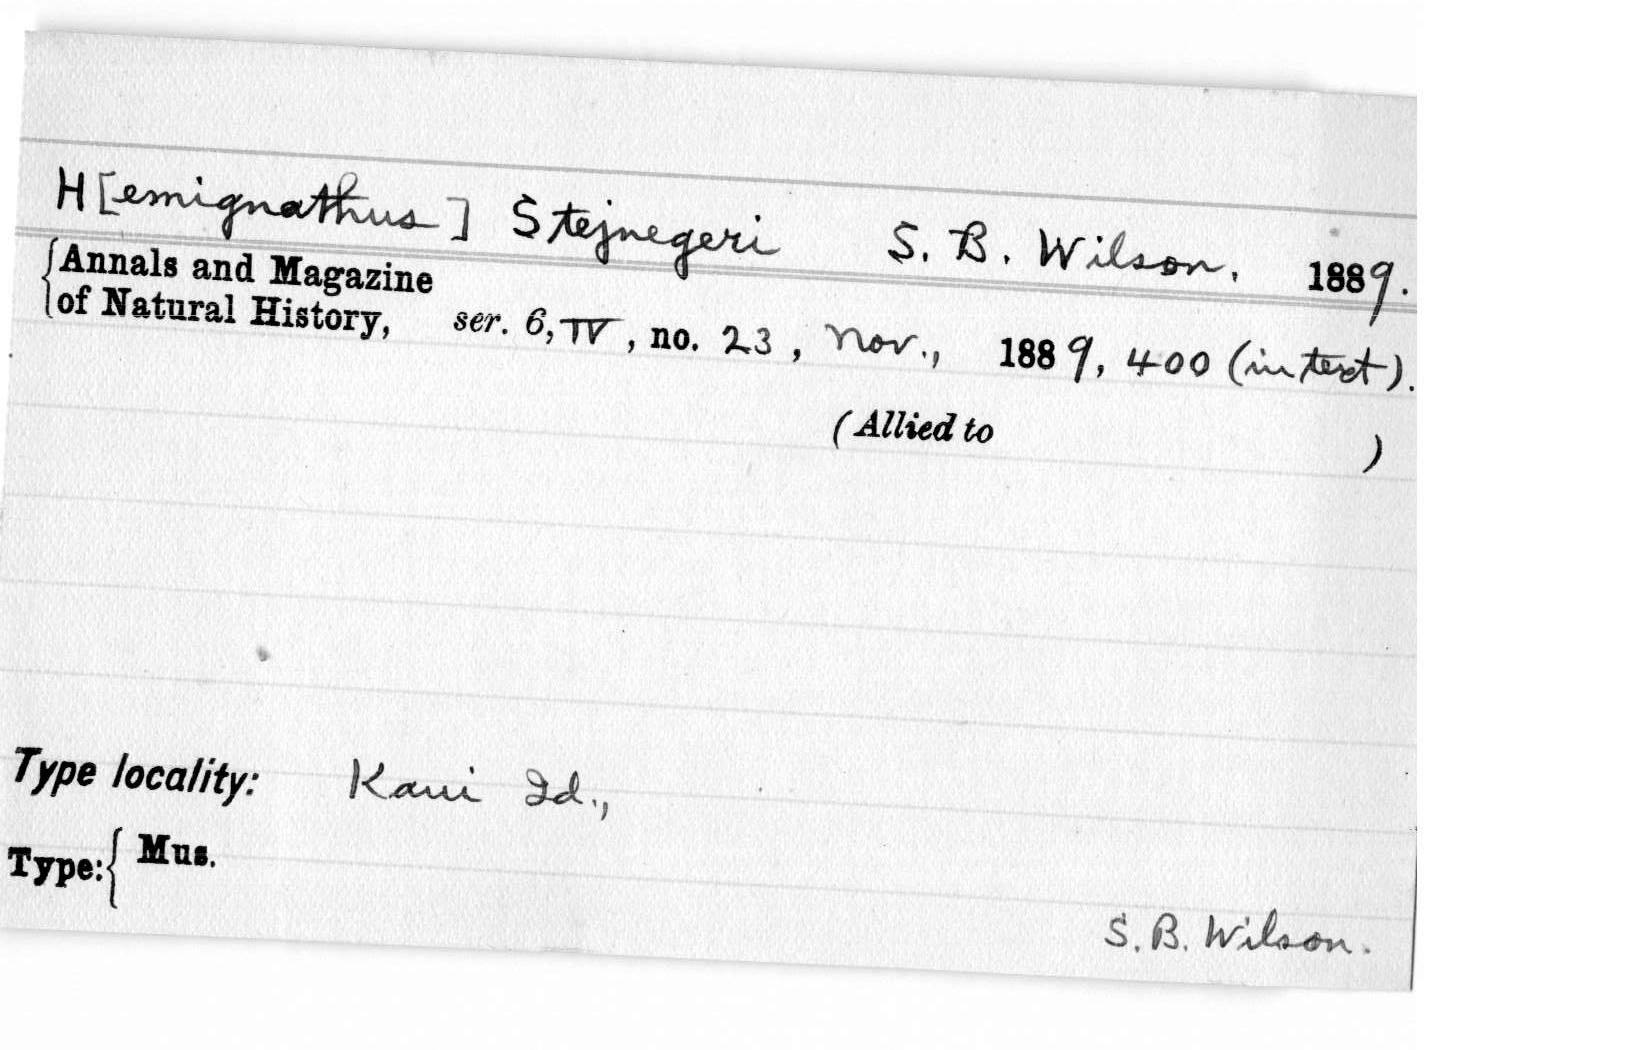 H[emignathus] Stejnegeri S. B. Wilson. 1889.
{Annals and Magazine
of Natural History, ser. 6, IV, no. 23, Nov., 1889, 400 (in text).
(Allied to )
Type locality: Kaui Id.,
Type:{ Mus.
S. B. Wilson.